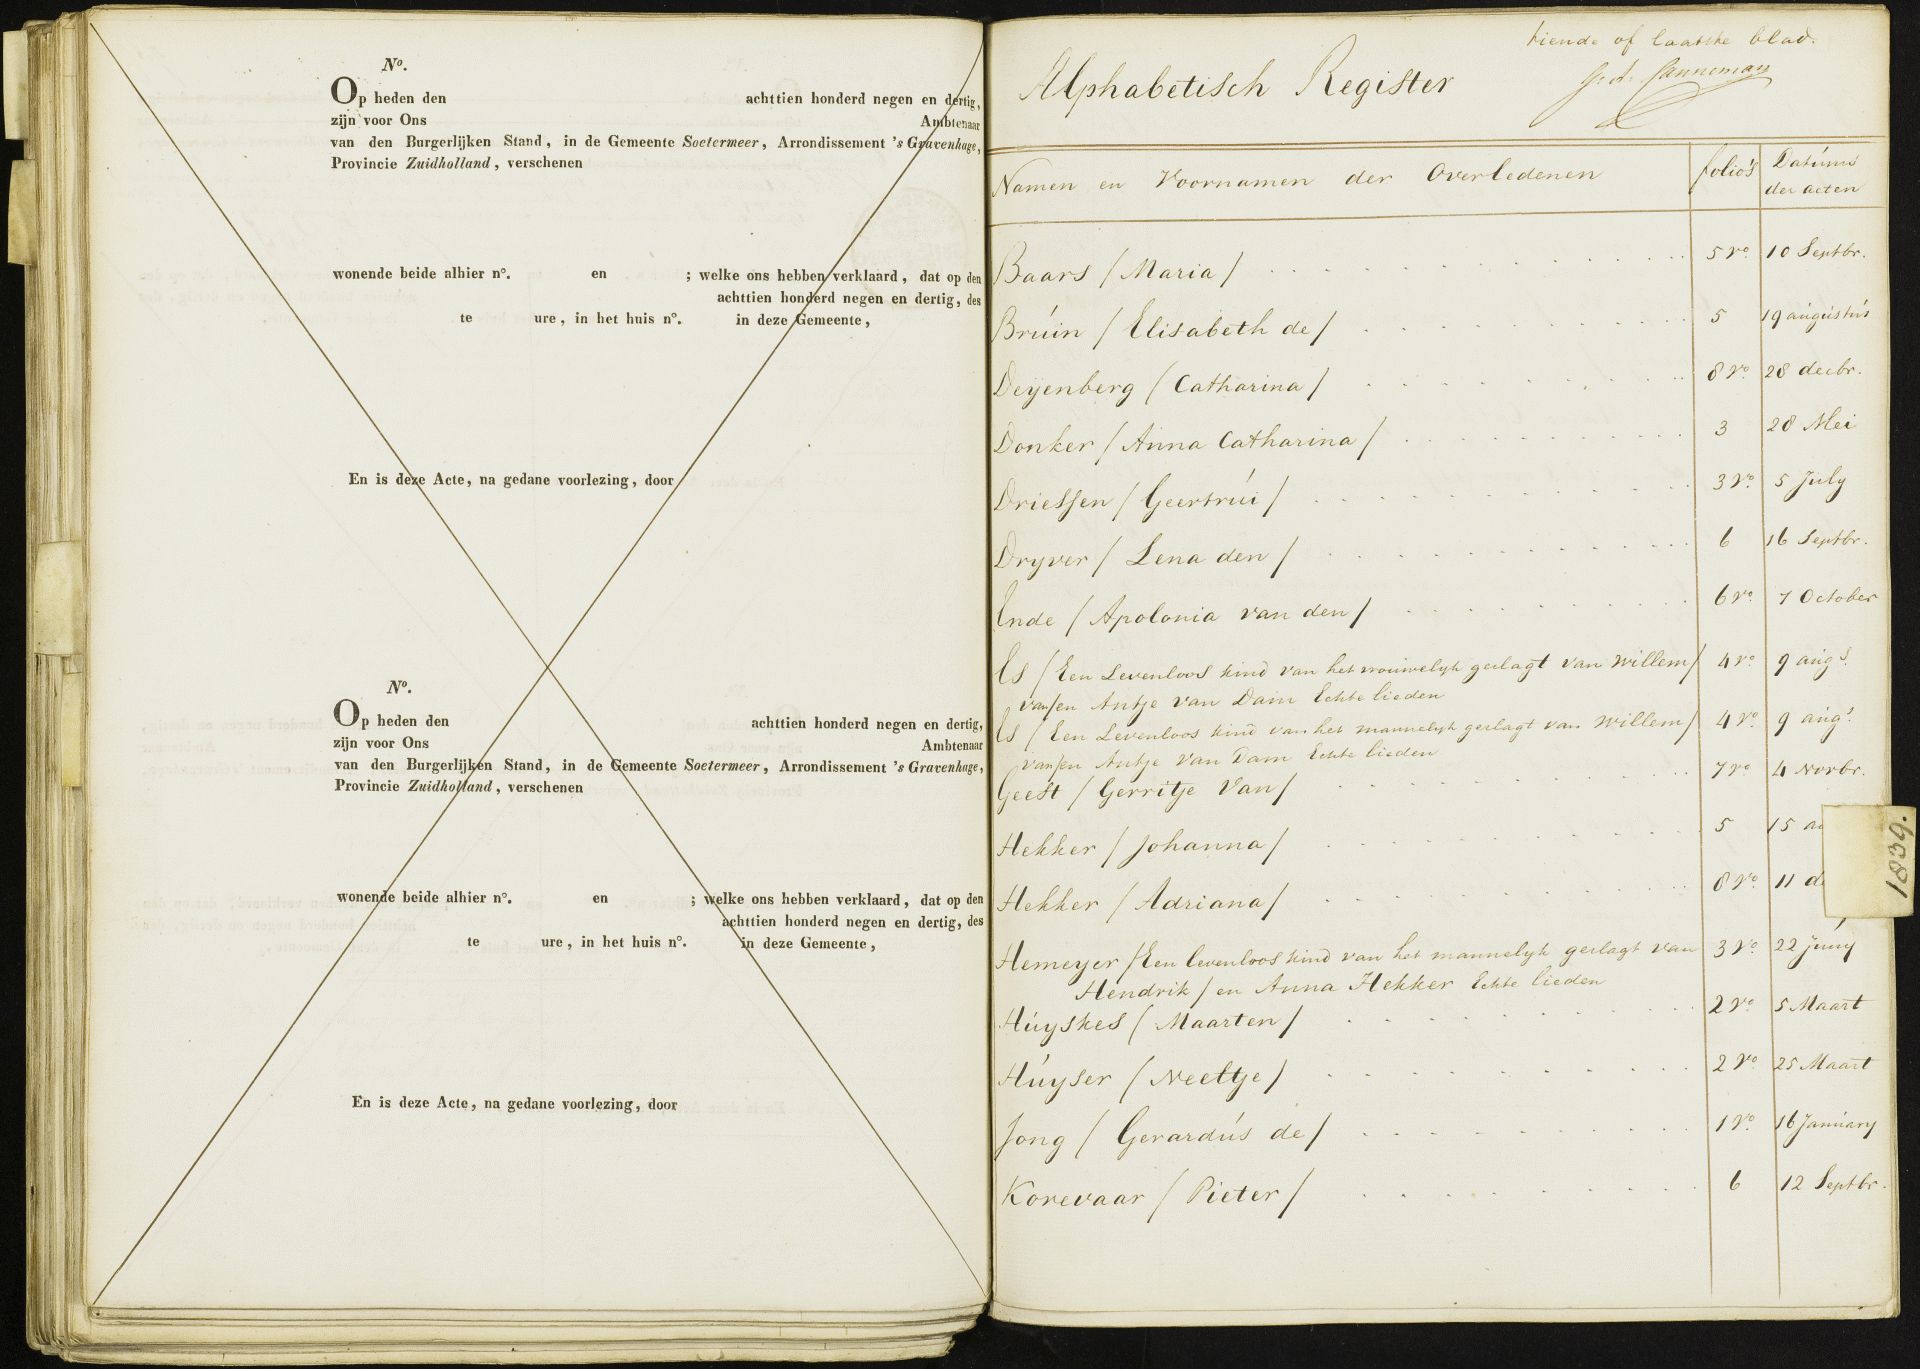 Nº.
Op heden den achttien honderd negen en dertig,
zijn voor Ons Ambtenaar
van den Burgerlijken Stand, in de Gemeente Soetermeer, Arrondissement 's Gravenhage,
Provincie Zuidholland, verschenen
wonende beide alhier nº. en ; welke ons hebben verklaard, dat op den
achttien honderd negen en dertig, des
te ure, in het huis nº. in deze Gemeente,
En is deze Acte, na gedane voorlezing, door
Nº.
Op heden den achttien honderd negen en dertig,
zijn voor Ons Ambtenaar
van den Burgerlijken Stand, in de Gemeente Soetermeer, Arrondissement 's Gravenhage,
Provincie Zuidholland, verschenen
wonende beide alhier nº. en ; welke ons hebben verklaard, dat op den
achttien honderd negen en dertig, des
te ure, in het huis nº. in deze Gemeente,
En is deze Acte, na gedane voorlezing, door
tiende of laatste blad.
Alphabetisch Register
Namen en Voornamen der Overledenen folio's Datúms der acten
Baars / Maria / 5 vº. 10 Septbr.
Brúin / Elisabeth de / 5 19 aúgústús
Deÿenberg / Catharina / 8 vº. 28 decbr.
Donker / Anna Catharina / 3 28 Mei
Driessen / Geertrúi / 3 vº. 5 July
Dryver / Lena den / 6 16 Septbr.
Ende / Apolonia van den / 6 vº. 7 October
Es / Een Levenloos kind van het vrouwelyk geslagt van Willem / 4 vº. 9 aúgs.
van / en Antje van Dam Echte lieden
Es / Een Levenloos kind van het mannelyk geslagt van Willem / 4 vº. 9 aúgs.
van / en Antje van Dam Echte lieden
Geest / Gerritje Van / 7 vº 4 Novbr.
Hekker / Johanna / 5 15
Hekker / Adriana / 8 vº. 11
Hemeyer / Een levenloos kind van het mannelyk geslagt van 3 vº. 22 Júny
Hendrik / en Anna Hekker Echte lieden
Húyskes / Maarten / 2 vº. 5 Maart
Húyser / Neeltje / 2 vº. 25 Maart
Jong / Gerardús de / 1 vº. 16 Janúary
Korevaar / Pieter / 6 12 Septbr.
1839.